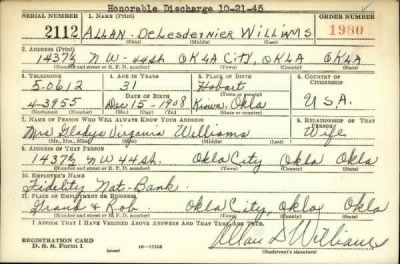 Honorable Discharge 10-21-45
SERIAL NUMBER 1. NAME (Print) ORDER NUMBER
2112 ALLAN - DeLesdernier Williams 1980
(First) (Middle) (Last)
2. ADDRESS (Print)
1437½ NW - 44sh OKLA City, OKLA OKLA
(Number and street or R. F. D. number) (Town) (County) (State)
3. TELEPHONE 4. AGE IN YEARS 5. PLACE OF BIRTH 6. COUNTRY OF CITIZENSHIP
5-0612 31 Hobart
DATE OF BIRTH (Town or county)
4-3955 Dec 15 - 1908 Kiowa, Okla USA.
(Exchange) (Number) (Mo.) (Day) (Yr.) (State or country)
7. NAME OF PERSON WHO WILL ALWAYS KNOW YOUR ADDRESS 8. RELATIONSHIP OF THAT PERSON
Mrs Gladys Virginia Williams Wife
(Mr., Mrs., Miss) (First) (Middle) (Last)
9. ADDRESS OF THAT PERSON
1437½ NW 44sh. Okla City Okla Okla
(Number and street or R. F. D. number) (Town) (County) (State)
10. EMPLOYER'S NAME
Fidelity Nat-Bank.
11. PLACE OF EMPLOYMENT OR BUSINESS
Grand & Rob Okla City, Okla Okla
(Number and street or R. F. D. number) (Town) (County) (State)
I AFFIRM THAT I HAVE VERIFIED ABOVE ANSWERS AND THAT THEY ARE TRUE.
REGISTRATION CARD
D. S. S. Form 1 (over) 16-17105 Allan D Williams
(Registrant's signature)